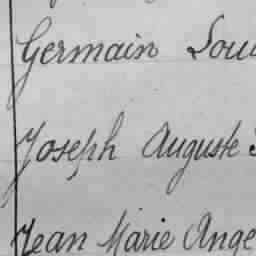 Germain Lou
Joseph Auguste
Jean Marie Ange